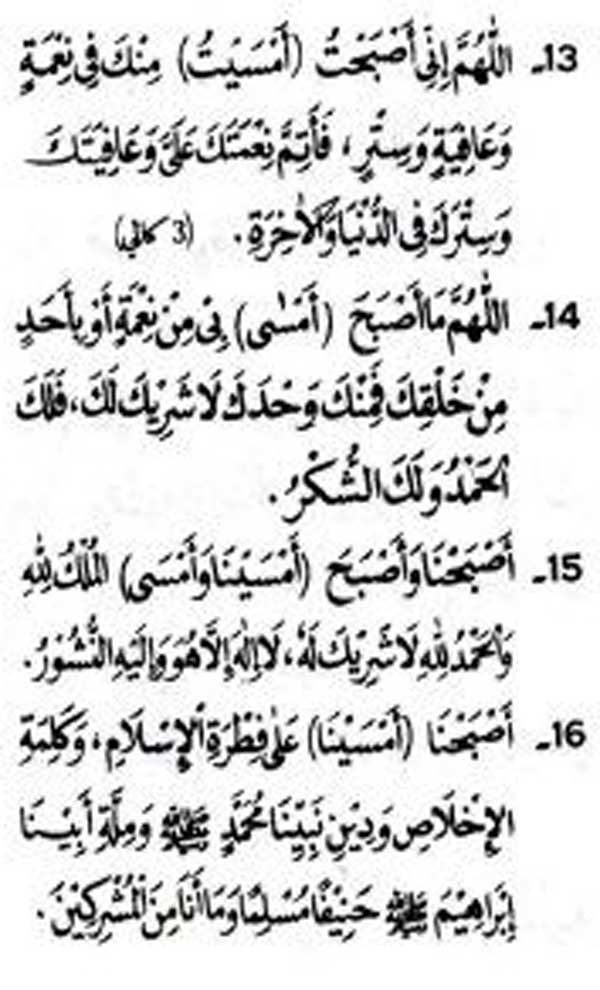 13ـ اَللّٰهُمَّ اِنِّى أَصْبَحْتُ (أَمْسَيْتُ) مِنْكَ فِى نِعْمَةٍ
وَعَافِيَةٍ وَسِتْرٍ، فَأَتِمَّ نِعْمَتَكَ عَلَىَّ وَعَافِيَتَكَ
وَسِتْرَكَ فِى الدُّنْيَا وَالْاٰخِرَةِ. (3 كالي)
14ـ اَللّٰهُمَّ مَا أَصْبَحَ (أَمْسٰى) بِىْ مِنْ نِعْمَةٍ أَوْ بِأَحَدٍ
مِنْ خَلْقِكَ فَمِنْكَ وَحْدَكَ لَا شَرِيْكَ لَكَ، فَلَكَ
الْحَمْدُ وَلَكَ الشُّكْرُ.
15ـ أَصْبَحْنَا وَأَصْبَحَ (أَمْسَيْنَا وَأَمْسَى) الْمُلْكُ لِلّٰهِ
وَالْحَمْدُ لِلّٰهِ لَا شَرِيْكَ لَهُ، لَا اِلٰهَ اِلَّا هُوَ وَاِلَيْهِ النُّشُوْرُ.
16ـ أَصْبَحْنَا (أَمْسَيْنَا) عَلٰى فِطْرَةِ الْاِسْلَامِ، وَكَلِمَةِ
الْاِخْلَاصِ وَدِيْنِ نَبِيِّنَا مُحَمَّدٍ ﷺ وَمِلَّةِ أَبِيْنَا
اِبْرَاهِيْمَ ﷺ حَنِيْفًا مُسْلِمًا وَمَا أَنَا مِنَ الْمُشْرِكِيْنَ.